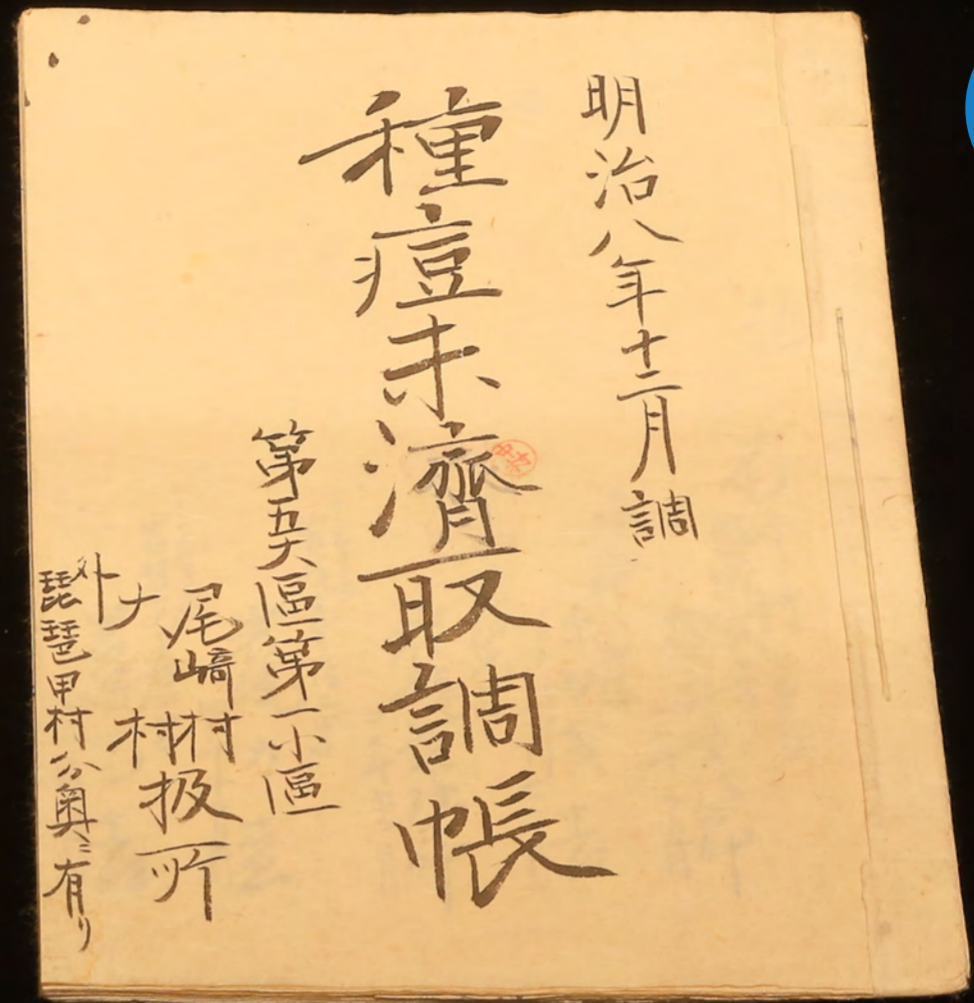 明治八年十二月調
種痘未濟取調帳
第五大區第一小區
尾﨑村
外 村
扱所
琵琶甲村分奥ニ有リ